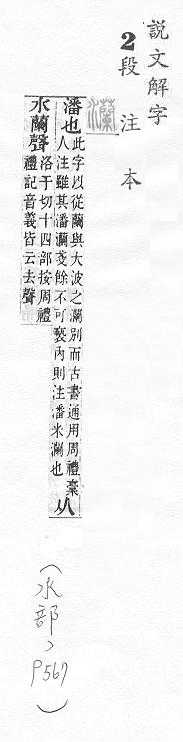 説文解字
2段注本
灡
潘也
此字以從蘭與大波之瀾別而古書通用周禮稾
人注雖其潘灡戔餘不可褻內則注潘米灡也
从
水蘭聲
洛干切十四部按周禮
禮記音義皆云去聲
(水部、P567)